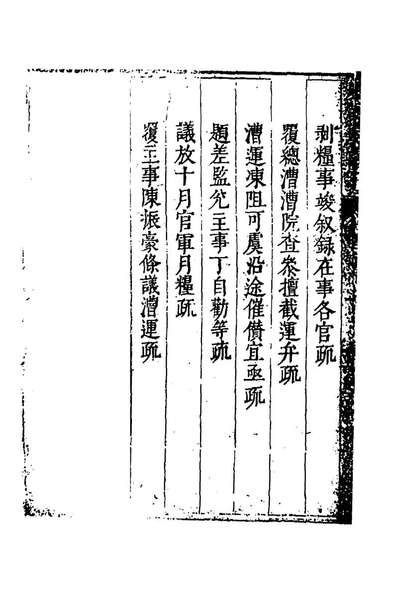 剥糧事竣叙録在事各官疏
覆總漕漕院查叅擅截運弁疏
漕運凍阻可虞沿途催儹宜亟疏
題差監兊主事丁自勸等疏
議放十月官軍月糧疏
覆主事陳振豪條議漕運疏